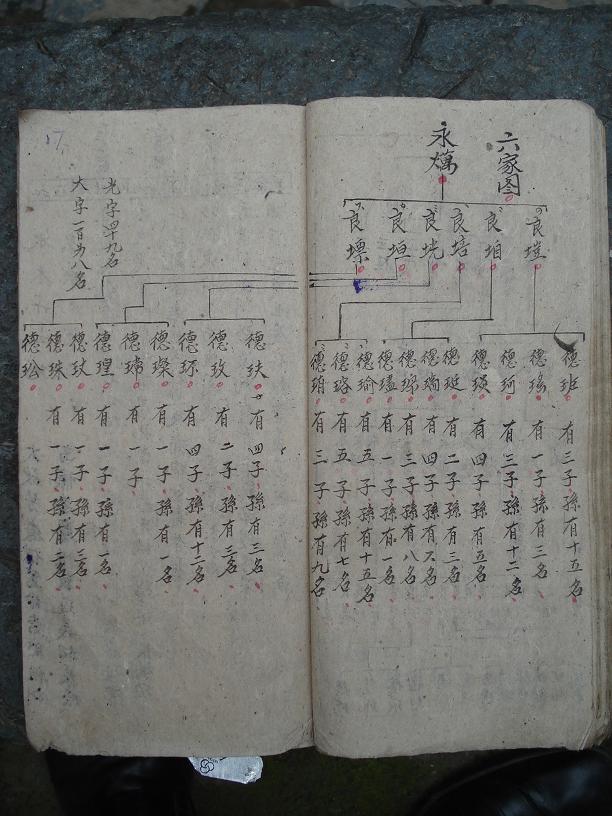 六家图
永爌
良塏
良垍
良培
良垙
良垣
良塛
德㺵
德瑤
德珂
德瑛
德珽
德瑞
德瑅
德瑥
德瑜
德璐
德珀
有三子孫有十五名
有一子孫有三名
有三子孫有十二名
有四子孫有五名
有二子孫有三名
有四子孫有六名
有三子孫有八名
有一子孫有一名
有五子孫有十五名
有五子孫有七名
有三子孫有九名
德玞
德玫
德环
德璨
德瑋
德瑝
德玟
德珠
德玱
有四子孫有三名
有二子孫有三名
有四子孫有十二名
有一子孫有一名
有一子
有一子孫有一名
有一子孫有三名
有一子孫有二名
光字四十九名
大字一百另八名
17